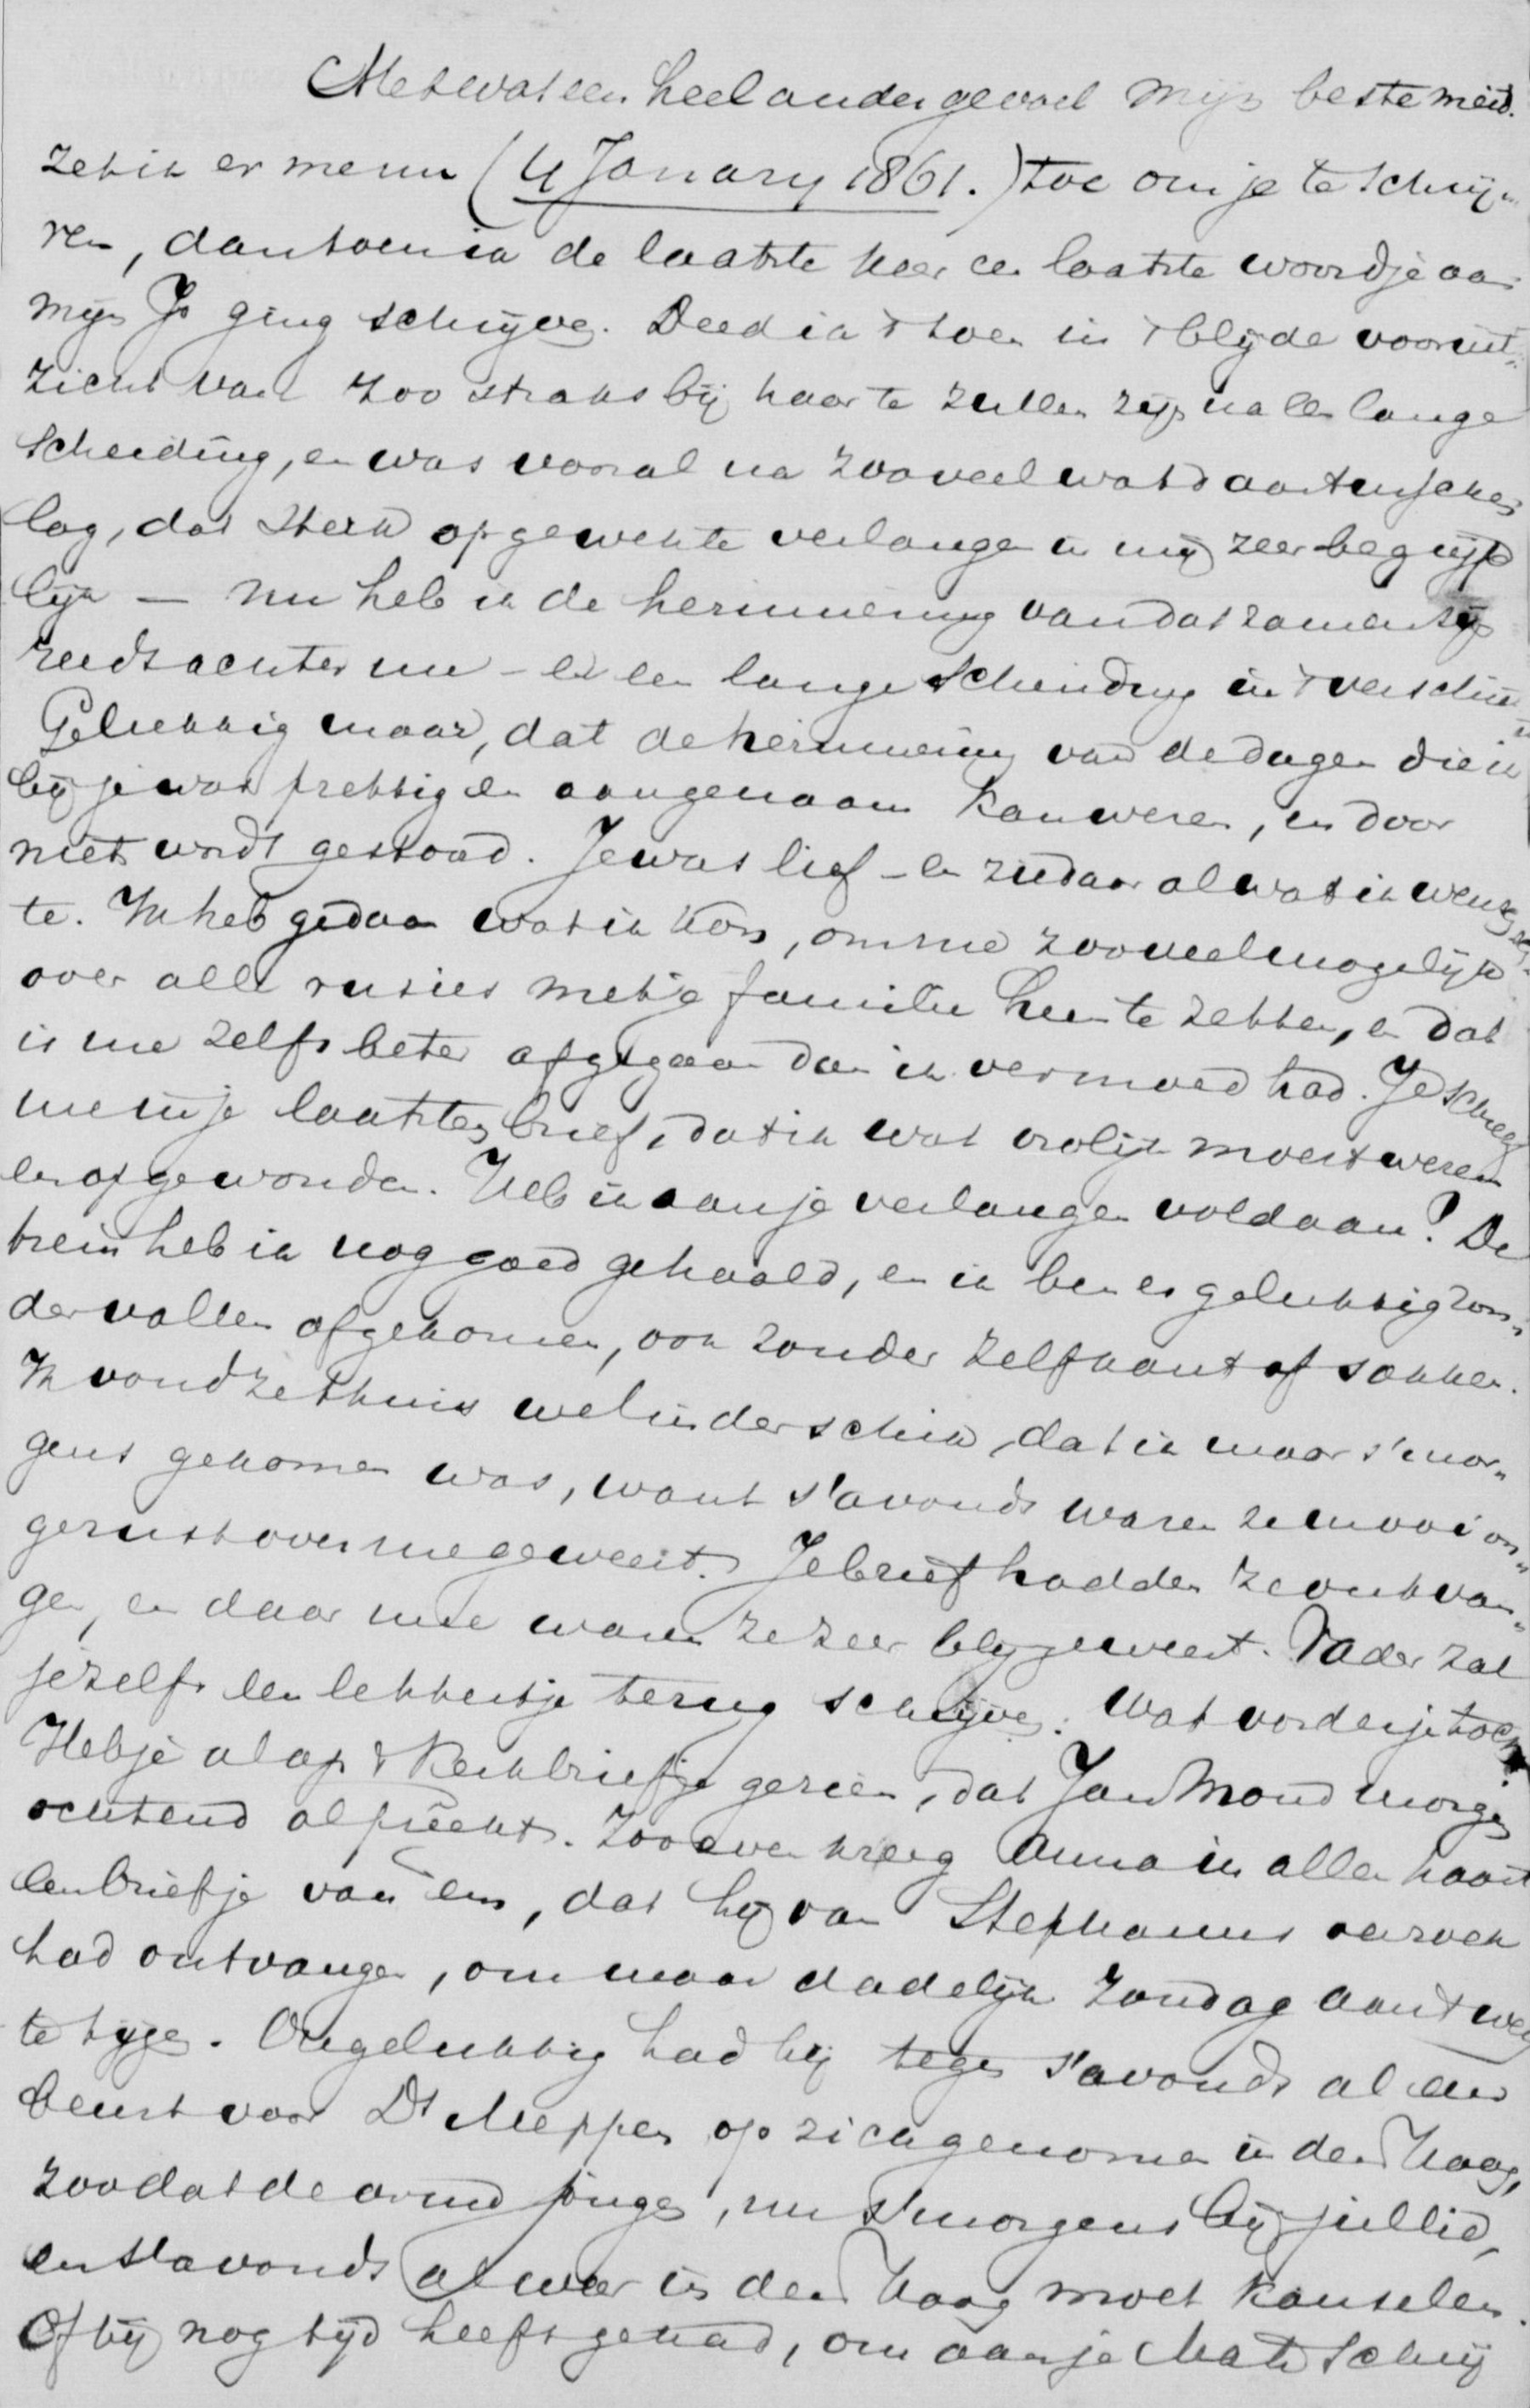 Met wat een heel ander gevoel mijn beste meid.
zet ik er me nu (4 January 1861.) toe om je te schrij„
ven, dan toen ik de laatste keer een laatste woordje aan
mijn Jo ging schrijven. Deed ik 't toen in 't blijde vooruit„
zicht van zoo straks bij haar te zullen zijn na een lange
scheiding, en was vooral na zooveel wat daartusschen
lag, dat sterk opgewekte verlangen in mij zeer begrijpe
lijk — nu heb ik de herinnering van dat zamenzijn
reeds achter me – en een lange scheiding in 't verschiet
Gelukkig maar, dat de herinnering van de dagen die ik
bij je was prettig en aangenaam kan wezen, en door
niets wordt gestoord. Je was lief – en ziedaar al wat ik wensch„
te. Ik heb gedaan wat ik kon, om me zooveel mogelijk
over alle rusies met je familie heen te zetten, en dat
is me zelfs beter afgegaan dan ik vermoed had. Je schreef
me in je laatsten brief, dat ik wat vrolijk moest wezen
en opgewonden. Heb ik aan je verlangen voldaan? De
trein heb ik nog goed gehaald, en ik ben er gelukkig zon„
der vallen afgekomen, ook zonder zelfkant of sokken.
Ik vond ze thuis wel in der schik, dat ik maar s'mor„
gens gekomen was, want s'avonds waren ze mooi on„
gerust over me geweest. Je brief hadden ze ontvan„
gen, en daar mee waren ze zeer blij geweest. Vader zal
je zelfs een lekkertje terug schrijven. Wat vorder je toch!
Heb je al op 't Kerkbriefje gezien, dat Jan Mond morgen
ochtend al preekt. Zooeven kreeg Anna in allen haast
een briefje van em, dat hij van Stephanus verzoek
had ontvangen, om maar dadelijk Zondag aan 't werk
te tijgen. Ongelukkig had hij tegen s'avonds al een
beurt voor Ds Meppen op zich genomen in den Haag,
zoodat de arme jongen, nu s'morgens bij jullie,
en s'avonds al weer in den Haag moet kanselen.
Of hij nog tijd heeft gehad, om aan je Mata schrij